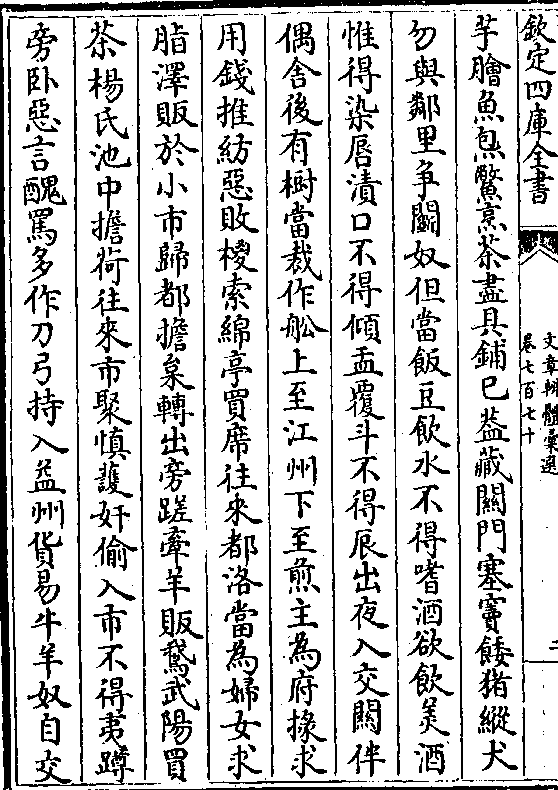 欽定四庫全書
文章辨體彙選
卷七百七十
二
芋膾魚炰鱉烹茶盡具鋪已葢藏關門塞竇餧猪縱犬
勿與鄰里争鬬奴但當飯豆飲水不得嗜酒欲飲美酒
惟得染唇漬口不得傾盂覆斗不得辰出夜入交關伴
偶舍後有樹當裁作舩上至江州下至煎主為府掾求
用錢推紡惡敗椶索綿亭買席往來都洛當為婦女求
脂澤販於小市歸都擔枲轉出旁蹉牽羊販鵞武陽買
茶楊氏池中擔荷往來市聚慎護奸偷入市不得夷蹲
旁卧惡言醜罵多作刀弓持入益州貨易牛羊奴自交